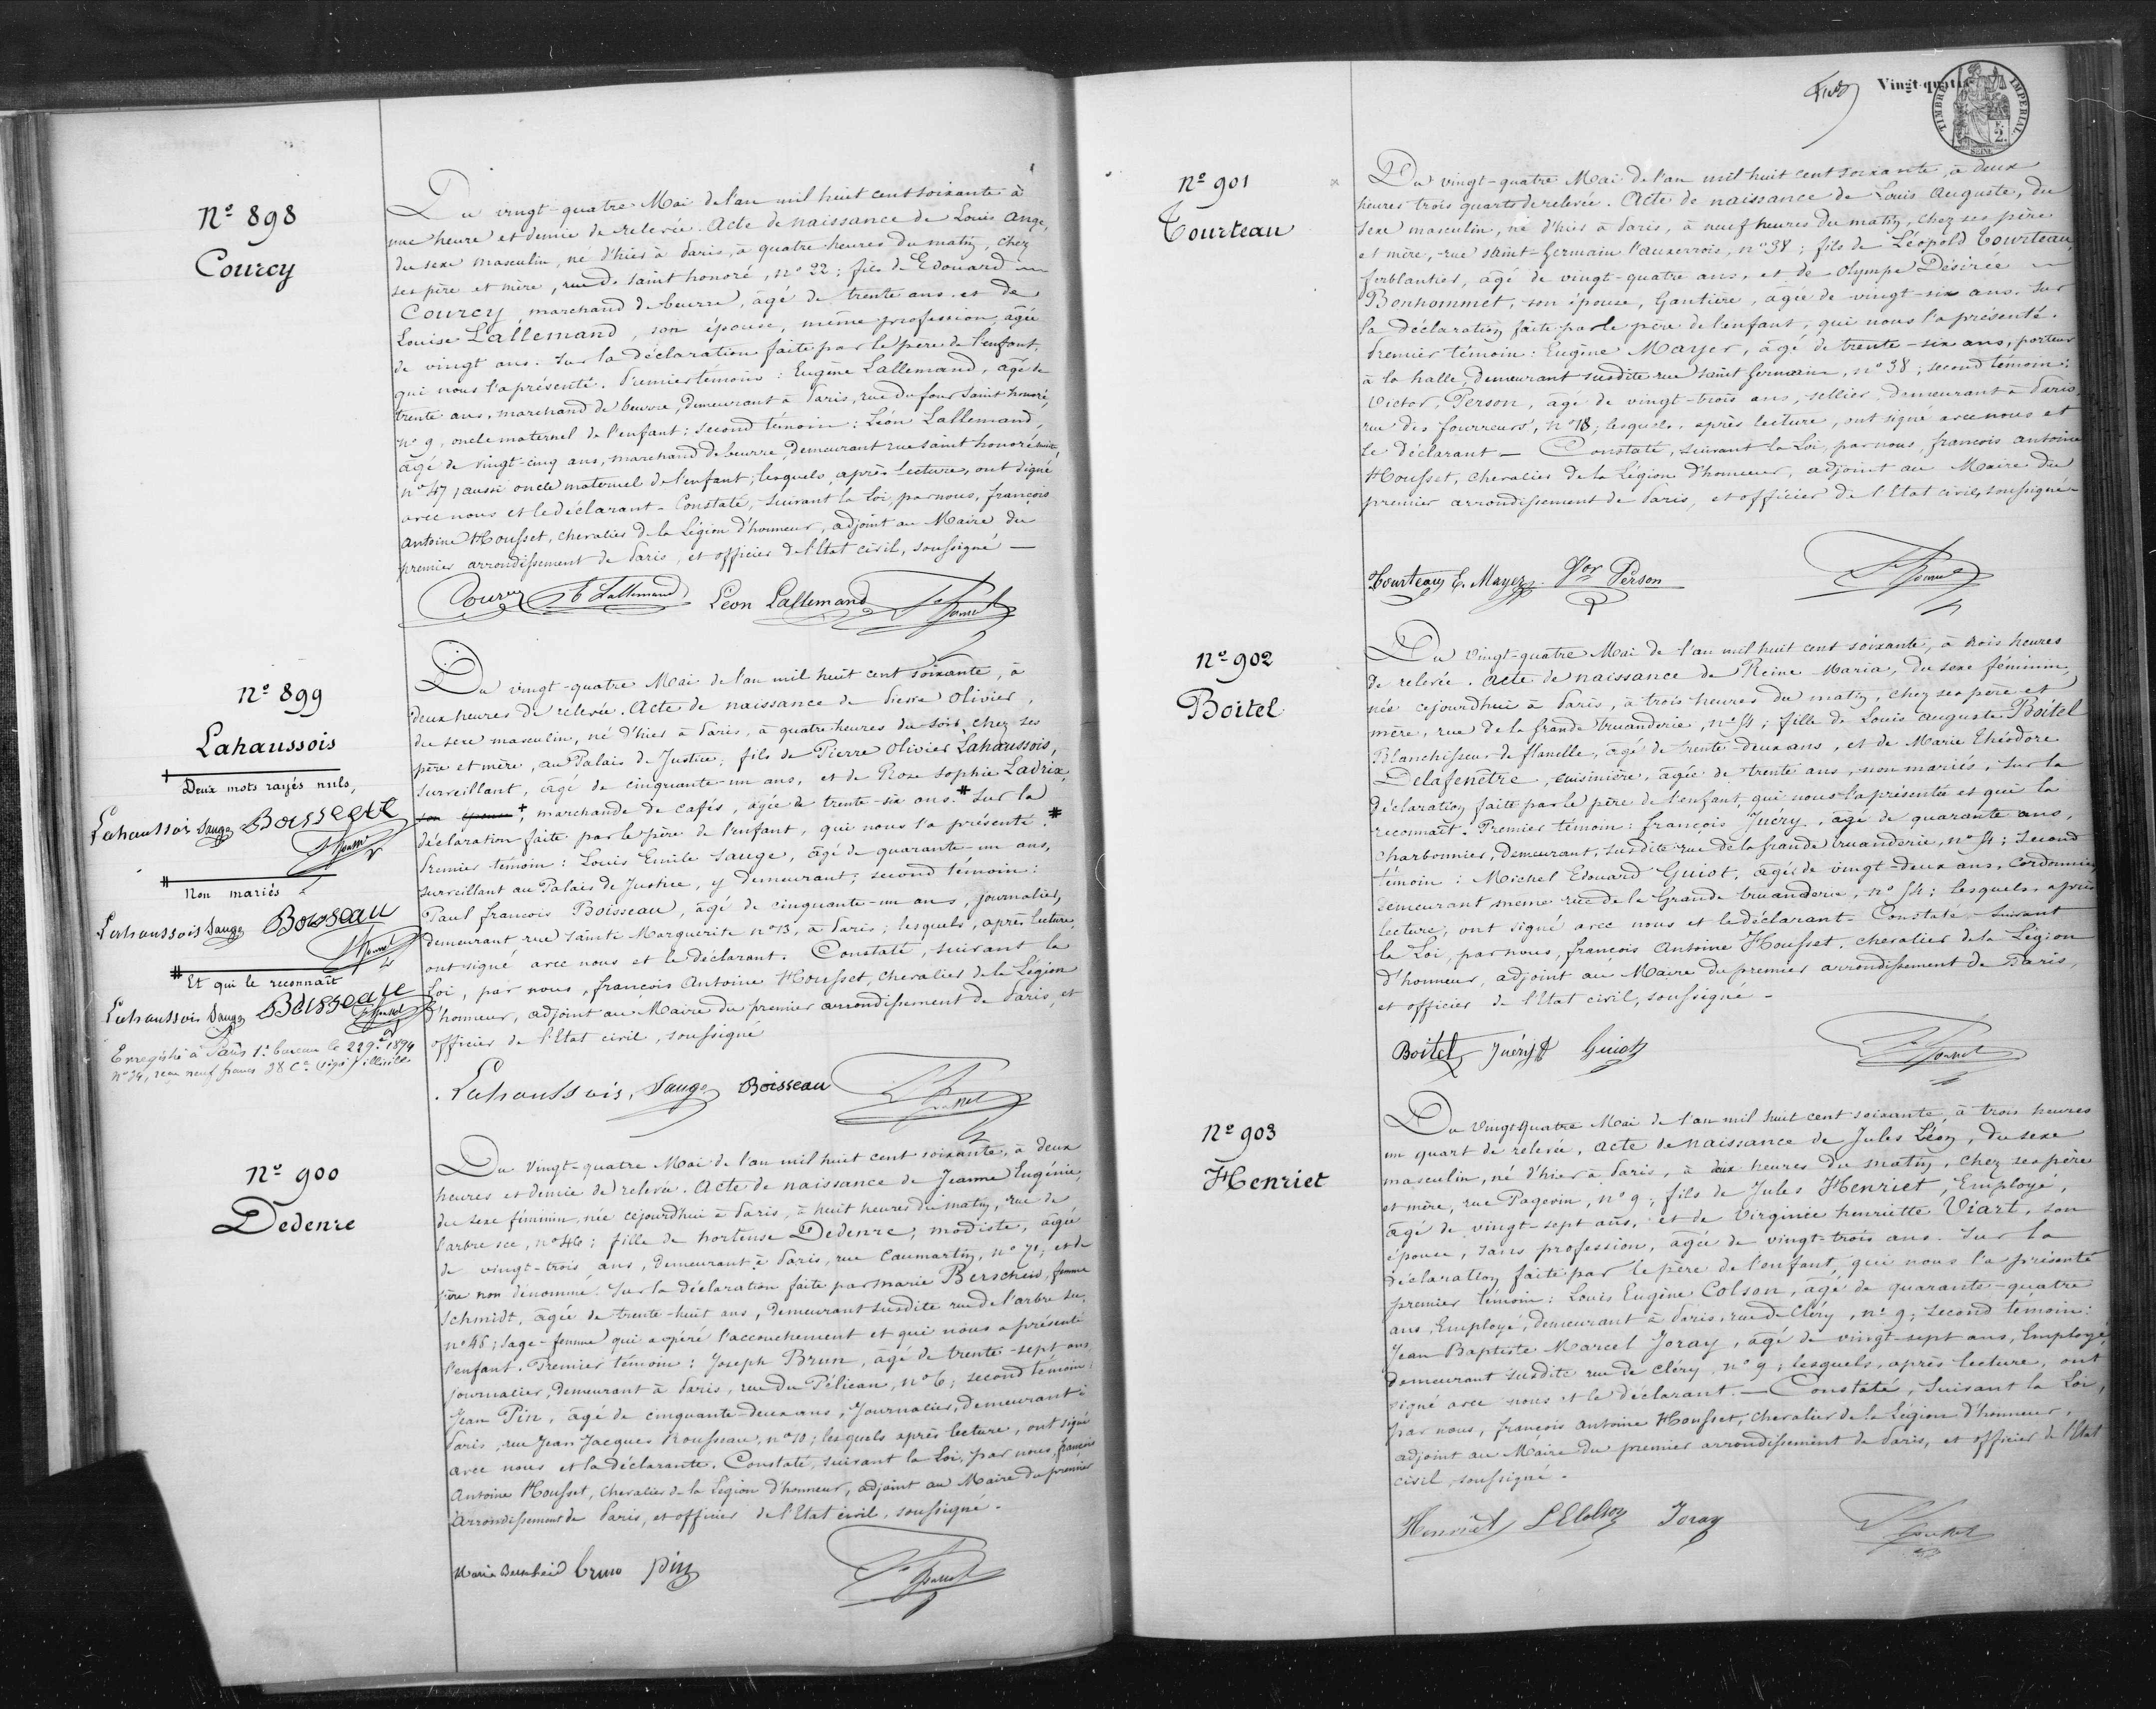 N° 898
Courcy
Du vingt-quatre Mai de l'an mil huit cent soixante à
une heure et demie de relevée. Acte de naissance de Louis Ange,
du sexe masculin, né d'hier à Paris, à quatre heures du matin, chez
ses père et mère, rue de saint honoré, n° 22; fils de Edouard
Courcy, marchand de beurre, âgé de trente ans et de
Louise Lallemand, son épouse, même profession, âgée
de vingt ans. Sur la déclaration faite par le père de l'enfant,
qui nous l'a présenté. Premier témoin: Eugène Lallemand, âgé de
trente ans, marchand de beurre, demeurant à Paris, rue du four saint honoré,
n° 9, oncle maternel de l'enfant; second témoin: Léon Lallemand,
âgé de vingt-cinq ans, marchand de beurre, demeurant rue saint honoré
n° 47, aussi oncle maternel de l'enfant; lesquels, après lecture, ont signé
avec nous et le déclarant. Constaté, suivant la loi, par nous, françois
Antoine Housset, chevalier de la Légion d'honneur, adjoint au Maire du
premier arrondissement de Paris, et officier de l'Etat civil, soussigné —
Courcy Lallemand Léon Lallemand Housset
N° 899
Lahaussois
+ Deux mots rayés nuls,
Lahaussois Sauge Boisseau
Housset
# Non mariés
Lahaussois Sauge Boisseau
Housset
# Et qui le reconnaît
Lahaussois Sauge Boisseau Housset
Enregistré à Paris 1er bureau le 1894
neuf francs 38 c.
Du vingt-quatre Mai de l'an mil huit cent soixante, à
deux heures de relevée. Acte de naissance de Pierre Olivier,
du sexe masculin, né d'hier à Paris, à quatre heures du soir, chez ses
père et mère, au Palais de Justice; fils de Pierre Olivier Lahaussois,
surveillant, âgé de cinquante-un ans, et de Rose Sophie Ladrix,
son épouse +, marchande de cafés, âgée de trente-six ans. # Sur la
déclaration faite par le père de l'enfant, qui nous l'a présenté. #
Premier témoin: Louis Emile Sauge, âgé de quarante-un ans,
surveillant au Palais de Justice, y demeurant; second témoin:
Paul françois Boisseau, âgé de cinquante-un ans, journalier,
demeurant rue sainte Marguerite n° 13, à Paris; lesquels, après lecture,
ont signé avec nous et le déclarant. Constaté, suivant la
Loi, par nous, françois Antoine Housset, chevalier de la Légion
d'honneur, adjoint au Maire du premier arrondissement de Paris, et
officier de l'Etat civil, soussigné
Lahaussois, Sauge Boisseau Housset
N° 900
Dedenre
Du Vingt-quatre Mai de l'an mil huit cent soixante, à deux
heures et demie de relevée. Acte de naissance de Jeanne Eugénie,
du sexe féminin, née cejourd'hui à Paris, à huit heures du matin, rue de
l'arbre sec, n° 46; fille de hortense Dedenre, modiste, âgée
de vingt-trois ans, demeurant à Paris, rue Caumartin, n° 71, et de
père non dénommé. Sur la déclaration faite par marie Berscheid, femme
Schmidt, âgée de trente-huit ans, demeurant susdite rue de l'arbre sec,
n° 46; sage-femme qui a opéré l'accouchement et qui nous a présenté
l'enfant. Premier témoin: Joseph Brun, âgé de trente-sept ans,
journalier, demeurant à Paris, rue du Pélican, n° 6; second témoin:
Jean Pin, âgé de cinquante-deux ans, Journalier, demeurant à
Paris, rue Jean Jacques Rousseau, n° 10; lesquels après lecture, ont signé
avec nous et la déclarante. Constaté, suivant la Loi, par nous, françois
Antoine Housset, chevalier de la Légion d'honneur, adjoint au Maire du premier
arrondissement de Paris, et officier de l'Etat civil, soussigné.
Marie Berscheid brun pin Housset
Vingt-quatre
TIMBRE IMPERIAL
SEINE
N° 901
Tourteau
Du vingt-quatre Mai de l'an mil huit cent soixante, à deux
heures trois quarts de relevée. Acte de naissance de Louis Auguste, du
sexe masculin, né d'hier à Paris, à neuf heures du matin, chez ses père
et mère, rue saint-Germain l'auxerrois, n° 38; fils de Léopold Tourteau
ferblantier, âgé de vingt-quatre ans, et de Olympe Désirée
Bonhommet, son épouse, Gantière, âgée de vingt-six ans. Sur
la déclaration faite par le père de l'enfant, qui nous l'a présenté.
Premier témoin: Eugène Mayer, âgé de trente-six ans, porteur
à la halle, demeurant susdite rue saint Germain, n° 38; second témoin:
Victor Person, âgé de vingt-trois ans, sellier, demeurant à Paris,
rue des fourreurs, n° 18; lesquels, après lecture, ont signé avec nous et
le déclarant — Constaté, suivant la Loi, par nous, francois antoine
Housset, chevalier de la Légion d'honneur, adjoint au Maire du
premier arrondissement de Paris, et officier de l'Etat civil, soussigné
Tourteau E. Mayer Vor Person Housset
N° 902
Boitel
Du vingt-quatre Mai de l'an mil huit cent soixante, à trois heures
de relevée. Acte de naissance de Reine Maria, du sexe féminin,
née cejourd'hui à Paris, à trois heures du matin, chez ses père et
mère, rue de la Grande truanderie, n° 54; fille de Louis auguste Boitel
Blanchisseur de flanelle, âgé de trente-deux ans, et de Marie Théodore
Delafenêtre, cuisinière, âgée de trente ans, non mariés. Sur la
déclaration faite par le père de l'enfant, qui nous l'a présentée et qui la
reconnaît. Premier témoin: françois Juéry, âgé de quarante ans,
charbonnier, demeurant, susdite rue de la Grande truanderie, n° 54; second
témoin: Michel Edouard Guiot, âgé de vingt-deux ans, cordonnier,
demeurant même rue de la Grande truanderie, n° 54; lesquels, après
lecture, ont signé avec nous et le déclarant. Constaté, suivant
la Loi, par nous, francois Antoine Housset, chevalier de la Légion
d'honneur, adjoint au Maire du premier arrondissement de Paris,
et officier de l'Etat civil, soussigné -
Boitel Juéry Guiot Housset
N° 903
Henriet
Du vingt quatre Mai de l'an mil huit cent soixante, à trois heures
un quart de relevée, acte de naissance de Jules Léon, du sexe
masculin, né d'hier à Paris, à deux heures du matin, chez ses père
et mère, rue Pagevin, n° 9; fils de Jules Henriet, Employé,
âgé de vingt-sept ans, et de Virginie henriette Viart, son
épouse, sans profession, âgée de vingt-trois ans. Sur la
déclaration faite par le père de l'enfant, qui nous l'a présenté
premier témoin: Louis Eugène Colson, âgé de quarante-quatre
ans, Employé, demeurant à Paris, rue de Cléry, n° 9; second témoin:
Jean Baptiste Marcel Joray, âgé de vingt-sept ans, Employé,
demeurant susdite rue de cléry, n° 9; lesquels, après lecture, ont
signé avec nous et le déclarant. — Constaté, suivant la Loi,
par nous, françois Antoine Housset, chevalier de la Légion d'honneur,
adjoint au Maire du premier arrondissement de Paris, et officier de l'Etat
civil, soussigné.
Henriet LEColson Joray Housset